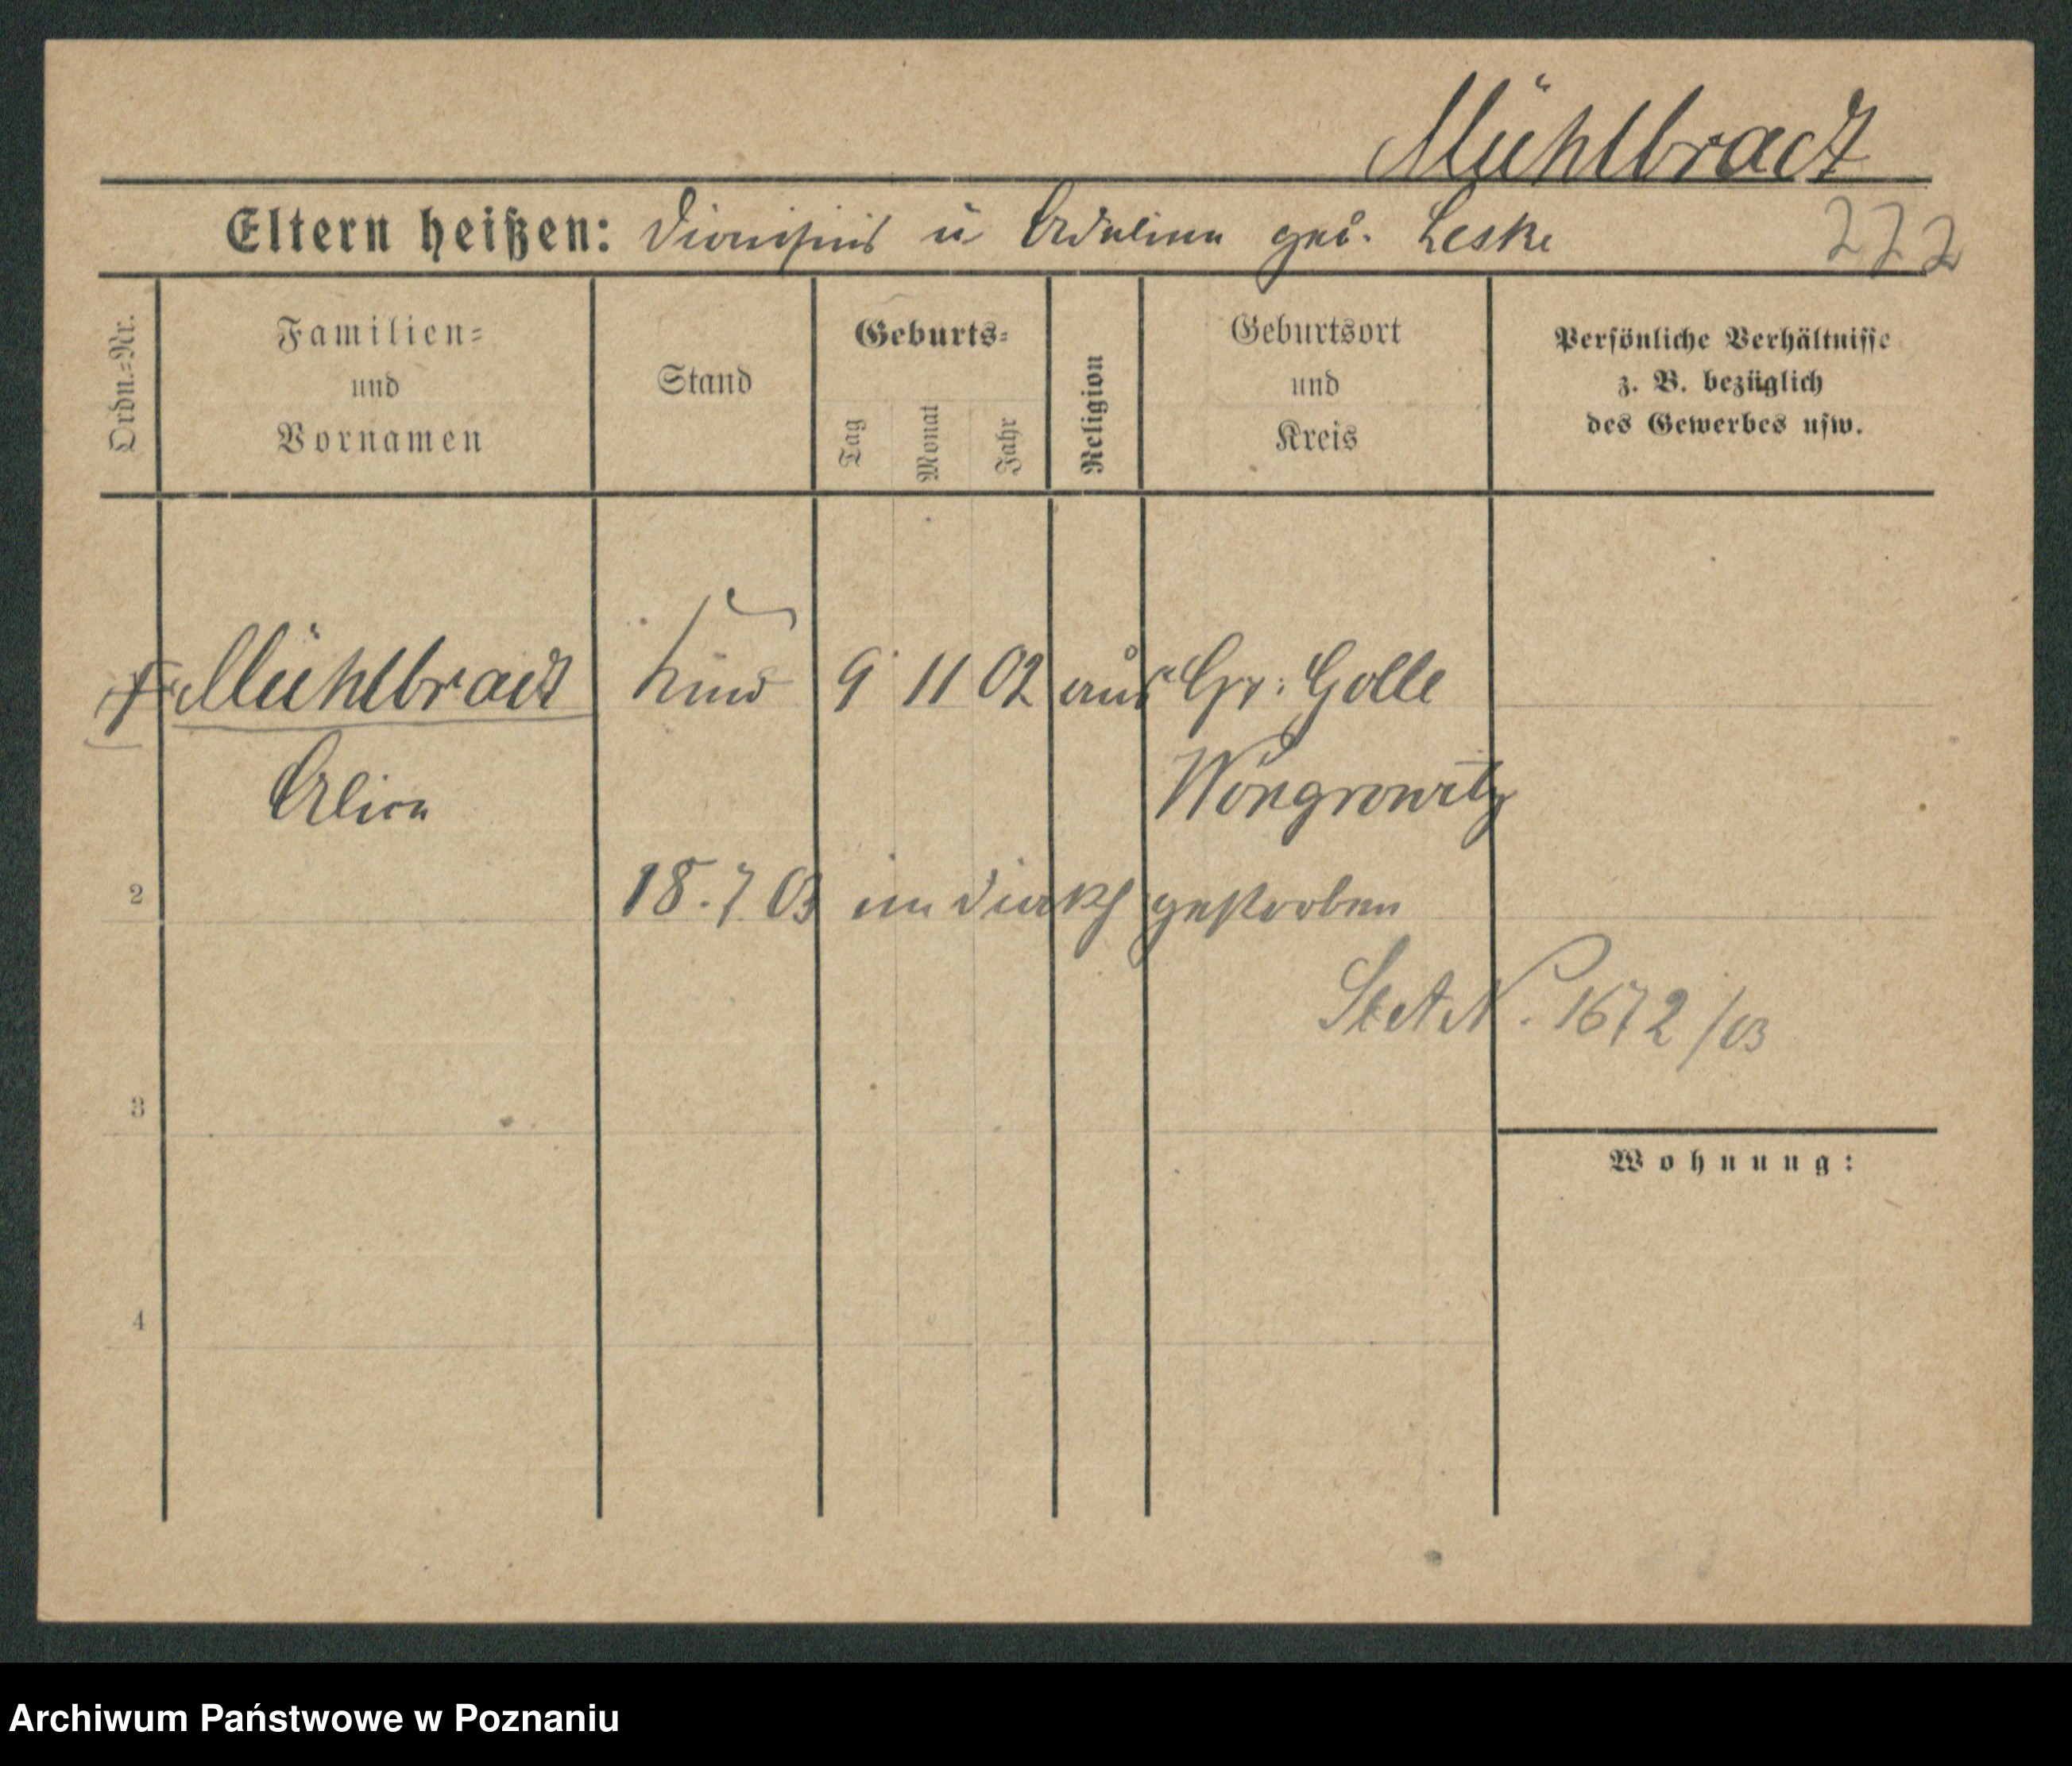 Mühlbradt
Eltern heißen: Dionisius u Adeline geb. Leske
272
Ordn.=Nr.
Familien=
und
Vornamen
Stand
Geburts=
Tag
Monat
Jahr
Religion
Geburtsort
und
Kreis
Persönliche Verhältnisse
z. B. bezüglich
des Gewerbes usw.
Mühlbradt Kind 9 11 02 Gr: Golle
Wongrowitz
2
18. 7. 03 im gestorben
St A N. 1672/03
3
Wohnung:
4
Archiwum Państwowe w Poznaniu